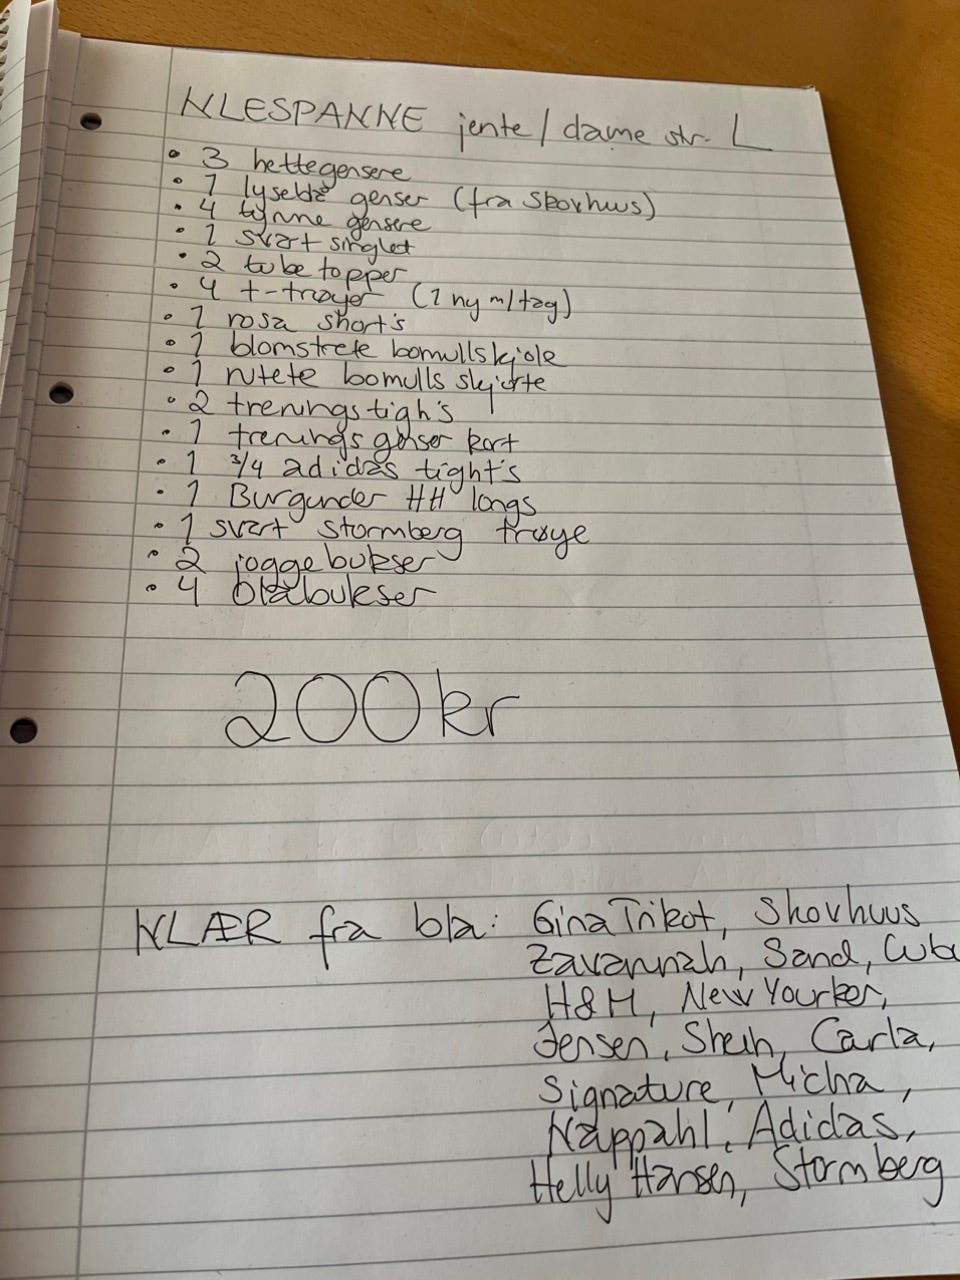 KLESPAKKE jente/dame str. L
• 3 hettegensere
• 1 lyseblå genser (fra Skovhuus)
• 4 tynne gensere
• 1 svart singlet
• 2 tube topper
• 4 t-trøyer (1 ny m/tag)
• 1 rosa short's
• 1 blomstrete bomullskjole
• 1 rutete bomulls skjorte
• 2 trenings tigh's
• 1 trenings genser kort
• 1 3/4 adidas tight's
• 1 Burgunder HH longs
• 1 svart stormberg trøye
• 2 joggebukser
• 4 blåbukser
200kr
KLÆR fra bla: Gina Trikot, Skovhuus
Zavannah, Sand,
H&M, New Yourker,
Jensen, Shein, Carla,
Signature, Micha,
Kappahl, Adidas,
Helly Hansen, Stormberg